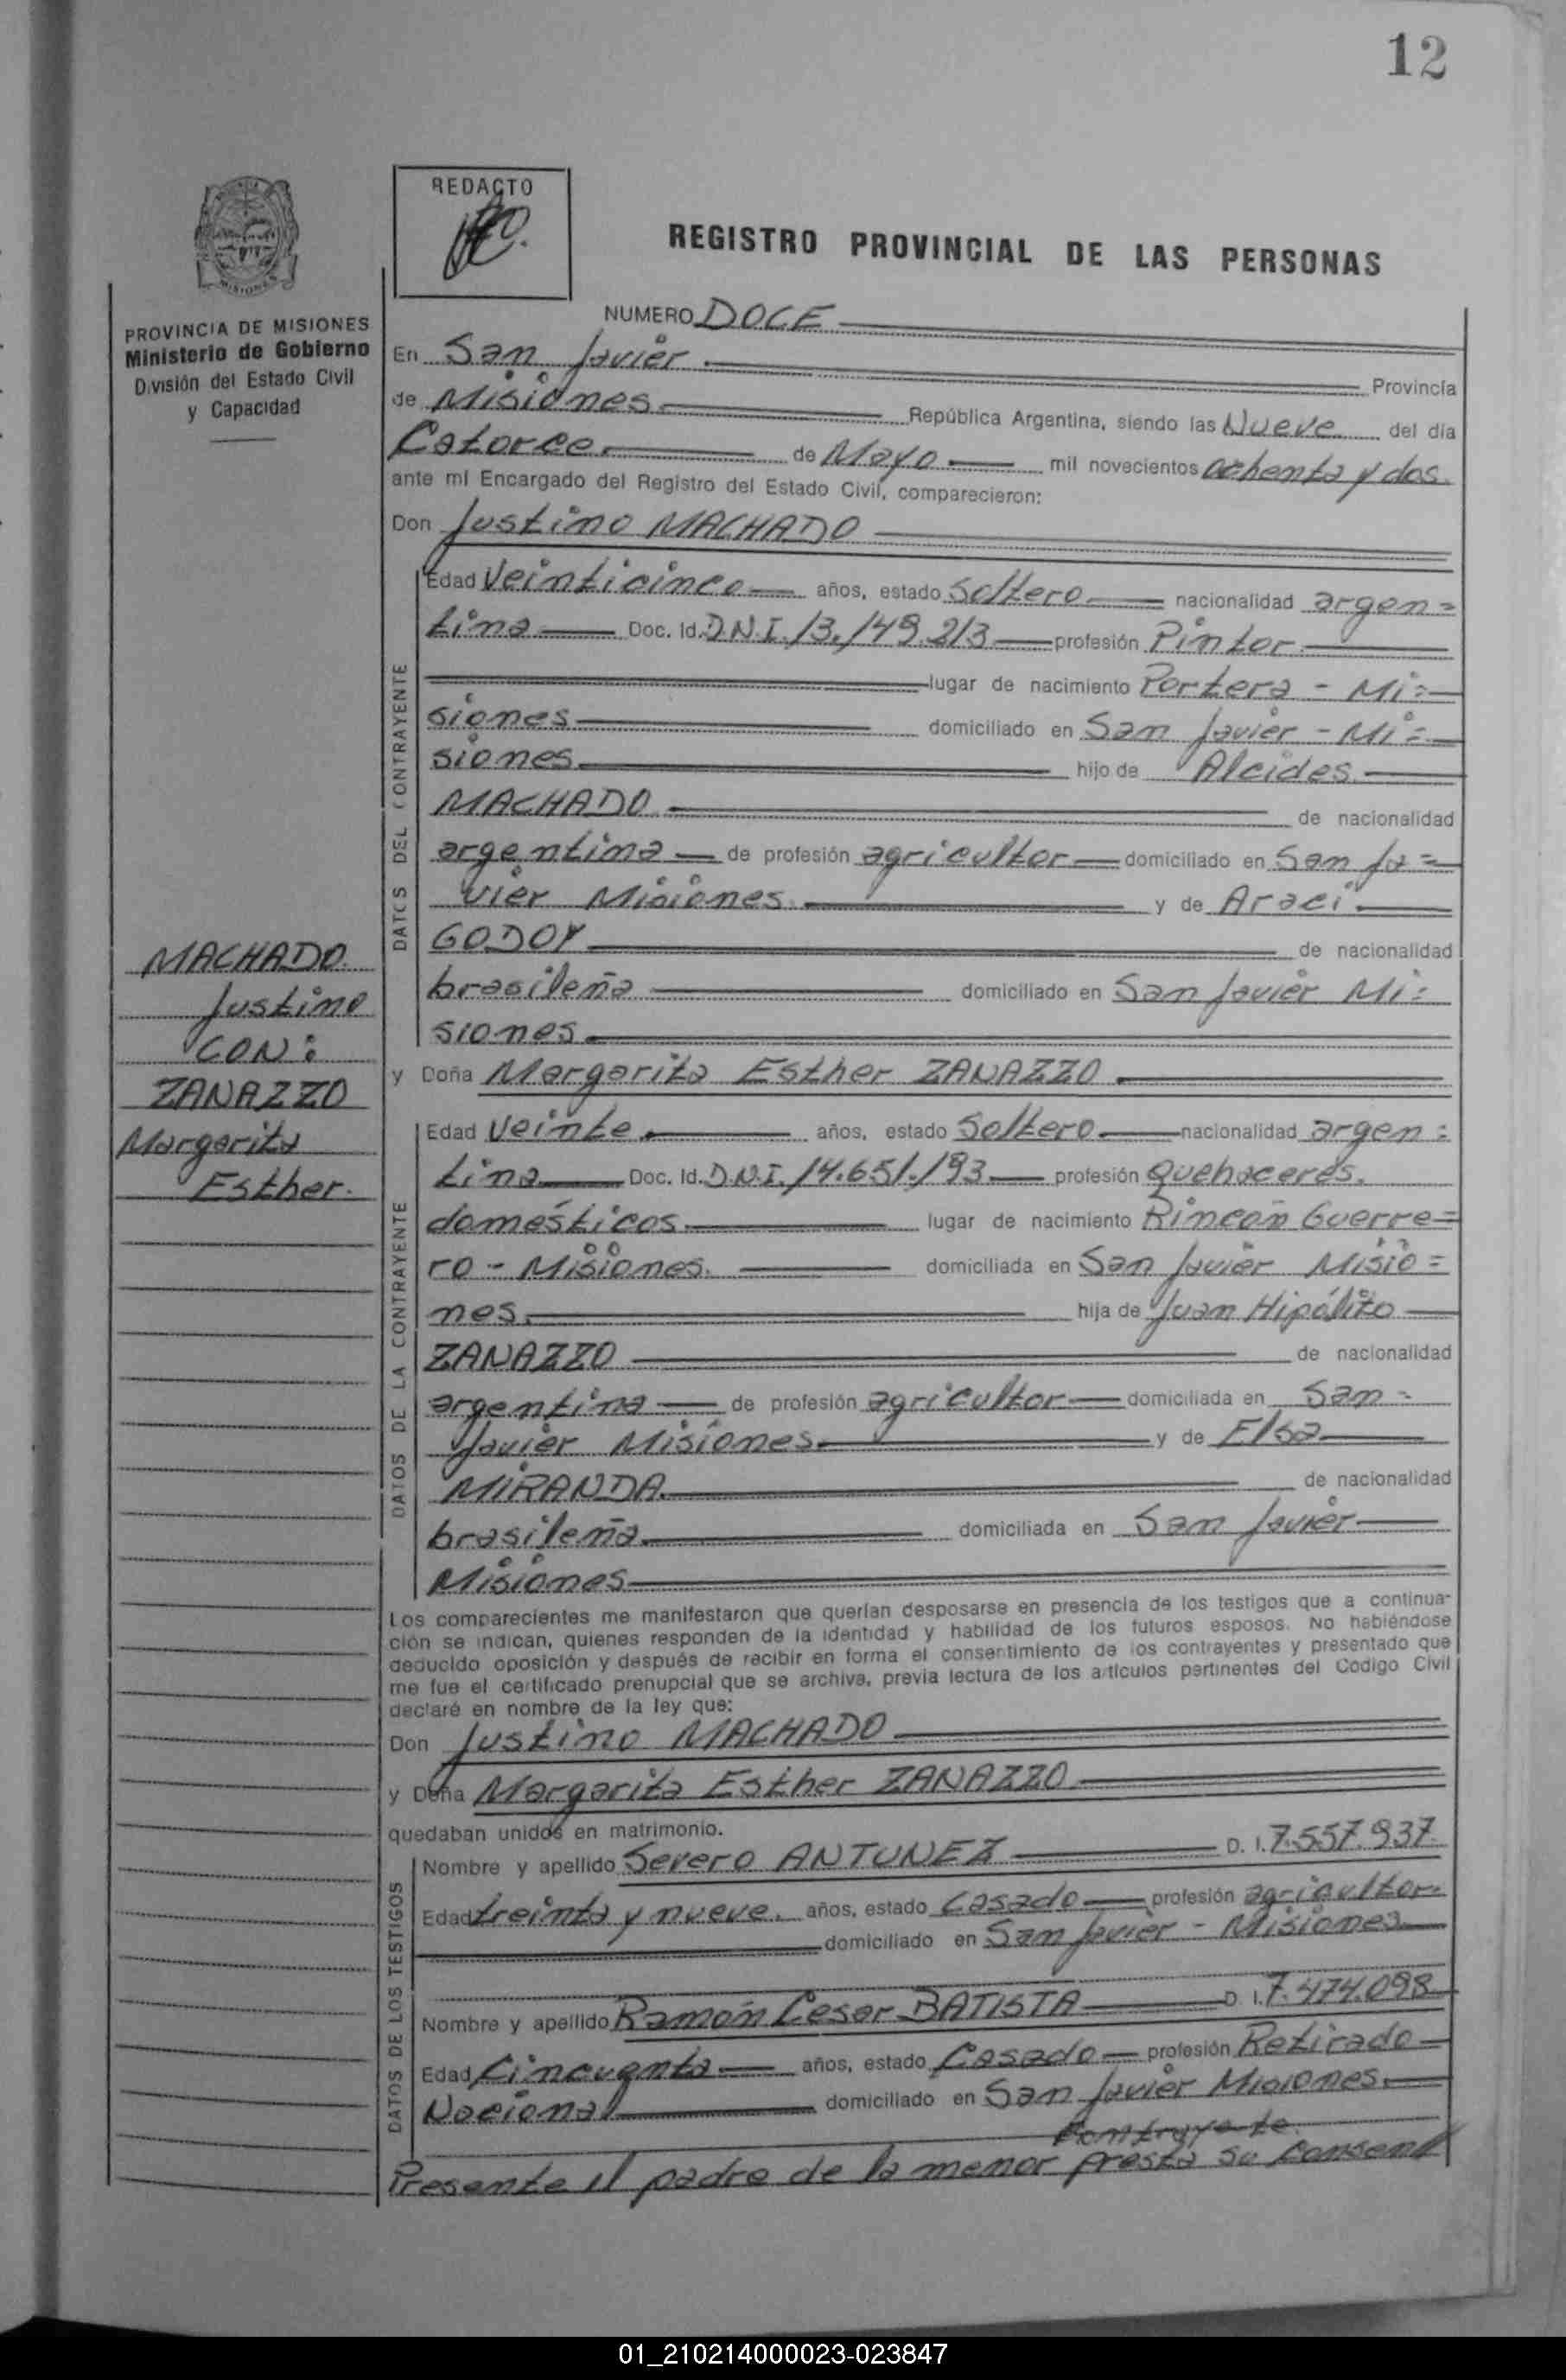 12
REDACTO
REGISTRO PROVINCIAL DE LAS PERSONAS
PROVINCIA DE MISIONES
Ministerio de Gobierno
División del Estado Civil
y Capacidad
NUMERO DOCE
En San Javier Provincia
de Misiones República Argentina, siendo las Nueve del día
Catorce de Mayo mil novecientos ochenta y dos
ante mi Encargado del Registro del Estado Civil, comparecieron:
Don Justino MACHADO
DATOS DEL CONTRAYENTE
Edad Veinticinco años, estado Soltero nacionalidad argen=
tina Doc. Id. D.N.I. 13.149.213 profesión Pintor
lugar de nacimiento Portera - Mi=
siones domiciliado en San Javier - Mi=
siones hijo de Alcides
MACHADO de nacionalidad
argentina de profesión agricultor domiciliado en San Ja=
vier Misiones y de Araci
GODOY de nacionalidad
brasileña domiciliado en San Javier Mi=
siones
MACHADO
Justino
CON:
ZANAZZO
Margarita
Esther.
y Doña Margarita Esther ZANAZZO
DATOS DE LA CONTRAYENTE
Edad Veinte años, estado Soltero nacionalidad argen=
tina Doc. Id. D.N.I. 14.651.193 profesión Quehaceres.
domésticos lugar de nacimiento Rincón Guerre=
ro - Misiones. domiciliada en San Javier Misio=
nes. hija de Juan Hipólito
ZANAZZO de nacionalidad
argentina de profesión agricultor domiciliada en San=
Javier Misiones y de Elsa
MIRANDA de nacionalidad
brasileña domiciliada en San Javier
Misiones
Los comparecientes me manifestaron que querían desposarse en presencia de los testigos que a continua-
ción se indican, quienes responden de la identidad y habilidad de los futuros esposos. No habiéndose
deducido oposición y después de recibir en forma el consentimiento de los contrayentes y presentado que
me fue el certificado prenupcial que se archiva, previa lectura de los artículos pertinentes del Código Civil
declaré en nombre de la ley que:
Don Justino MACHADO
y Doña Margarita Esther ZANAZZO
quedaban unidos en matrimonio.
DATOS DE LOS TESTIGOS
Nombre y apellido Severo ANTUNEZ D. I. 7.557.937
Edad treinta y nueve. años, estado Casado profesión agricultor
domiciliado en San Javier - Misiones
Nombre y apellido Ramón Cesar BATISTA D. I. 7.474.098
Edad Cincuenta años, estado Casado profesión Retirado
Nacional domiciliado en San Javier Misiones.
Presente el padre de la menor presta su consent
01_210214000023-023847